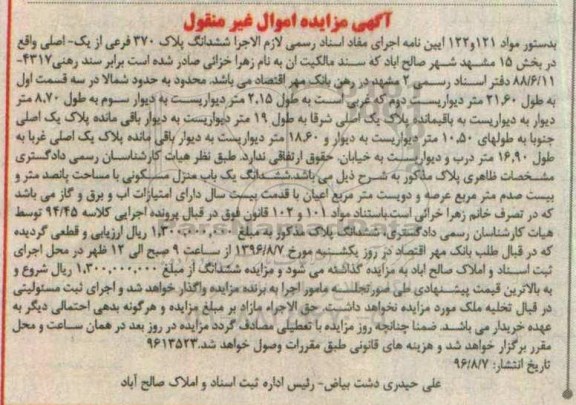 آگهی مزایده اموال غیر منقول
بدستور مواد ۱۲۱و۱۲۲ ایین نامه اجرای مفاد اسناد رسمی لازم الاجرا ششدانگ پلاک ۳۷۰ فرعی از یک- اصلی واقع
در بخش ۱۵ مشهد شهر صالح اباد که سند مالکیت ان به نام زهرا خزائی صادر شده است برابر سند رهنی۴۳۱۷-
۸۸/۶/۱۱ دفتر اسناد رسمی ۲ مشهد در رهن بانک مهر اقتصاد می باشد. محدود به حدود شمالا در سه قسمت اول
به طول ۲۱،۶۰ متر دیواریست دوم که غربی است به طول ۲،۱۵ متر دیواریست به دیوار سوم به طول ۸،۷۰ متر
دیوار به دیواریست به باقیمانده پلاک یک اصلی شرقا به طول ۱۹ متر دیواریست به دیوار باقی مانده پلاک یک اصلی
جنوبا به طولهای ۱۰،۵۰ متر دیواریست به دیوار و ۱۸،۶۰ متر دیواریست به دیوار باقی مانده پلاک یک اصلی غربا به
طول ۱۶،۹۰ متر درب و دیواریست به خیابان. حقوق ارتفاقی ندارد. طبق نظر هیات کارشناسان رسمی دادگستری
مشخصات ظاهری پلاک مذکور به شرح ذیل می باشد.ششدانگ یک باب منزل مسکونی با مساحت پانصد متر و
بیست صدم متر مربع عرصه و دویست متر مربع اعیان با قدمت بیست سال دارای امتیازات اب و برق و گاز می باشد
که در تصرف خانم زهرا خزائی است.باستناد مواد ۱۰۱ و ۱۰۲ قانون فوق در قبال پرونده اجرایی کلاسه ۹۴/۴۵ توسط
هیات کارشناسان رسمی دادگستری ششدانگ پلاک مذکور به مبلغ ۱,۳۰۰,۰۰۰,۰۰۰ ریال ارزیابی و قطعی گردیده
که در قبال طلب بانک مهر اقتصاد در روز یکشنبه مورخ ۱۳۹۶/۸/۷ از ساعت ۹ صبح الی ۱۲ ظهر در محل اجرای
ثبت اسناد و املاک صالح اباد به مزایده گذاشته می شود و مزایده ششدانگ از مبلغ ۱,۳۰۰,۰۰۰,۰۰۰ ریال شروع و
به بالاترین قیمت پیشنهادی طی صورتجلسه مامور اجرا به برنده مزایده واگذار خواهد شد و اجرای ثبت مسئولیتی
در قبال تخلیه ملک مورد مزایده نخواهد داشت. حق الاجراء مازاد بر مبلغ مزایده و هرگونه بدهی احتمالی دیگر به
عهده خریدار می باشد. ضمنا چنانچه روز مزایده با تعطیلی مصادف گردد مزایده در روز بعد در همان ساعت و محل
مقرر برگزار خواهد شد و هزینه های قانونی طبق مقررات وصول خواهد شد.۹۶۱۳۵۲۳
تاریخ انتشار: ۹۶/۸/۷
علی حیدری دشت بیاض- رئیس اداره ثبت اسناد و املاک صالح آباد